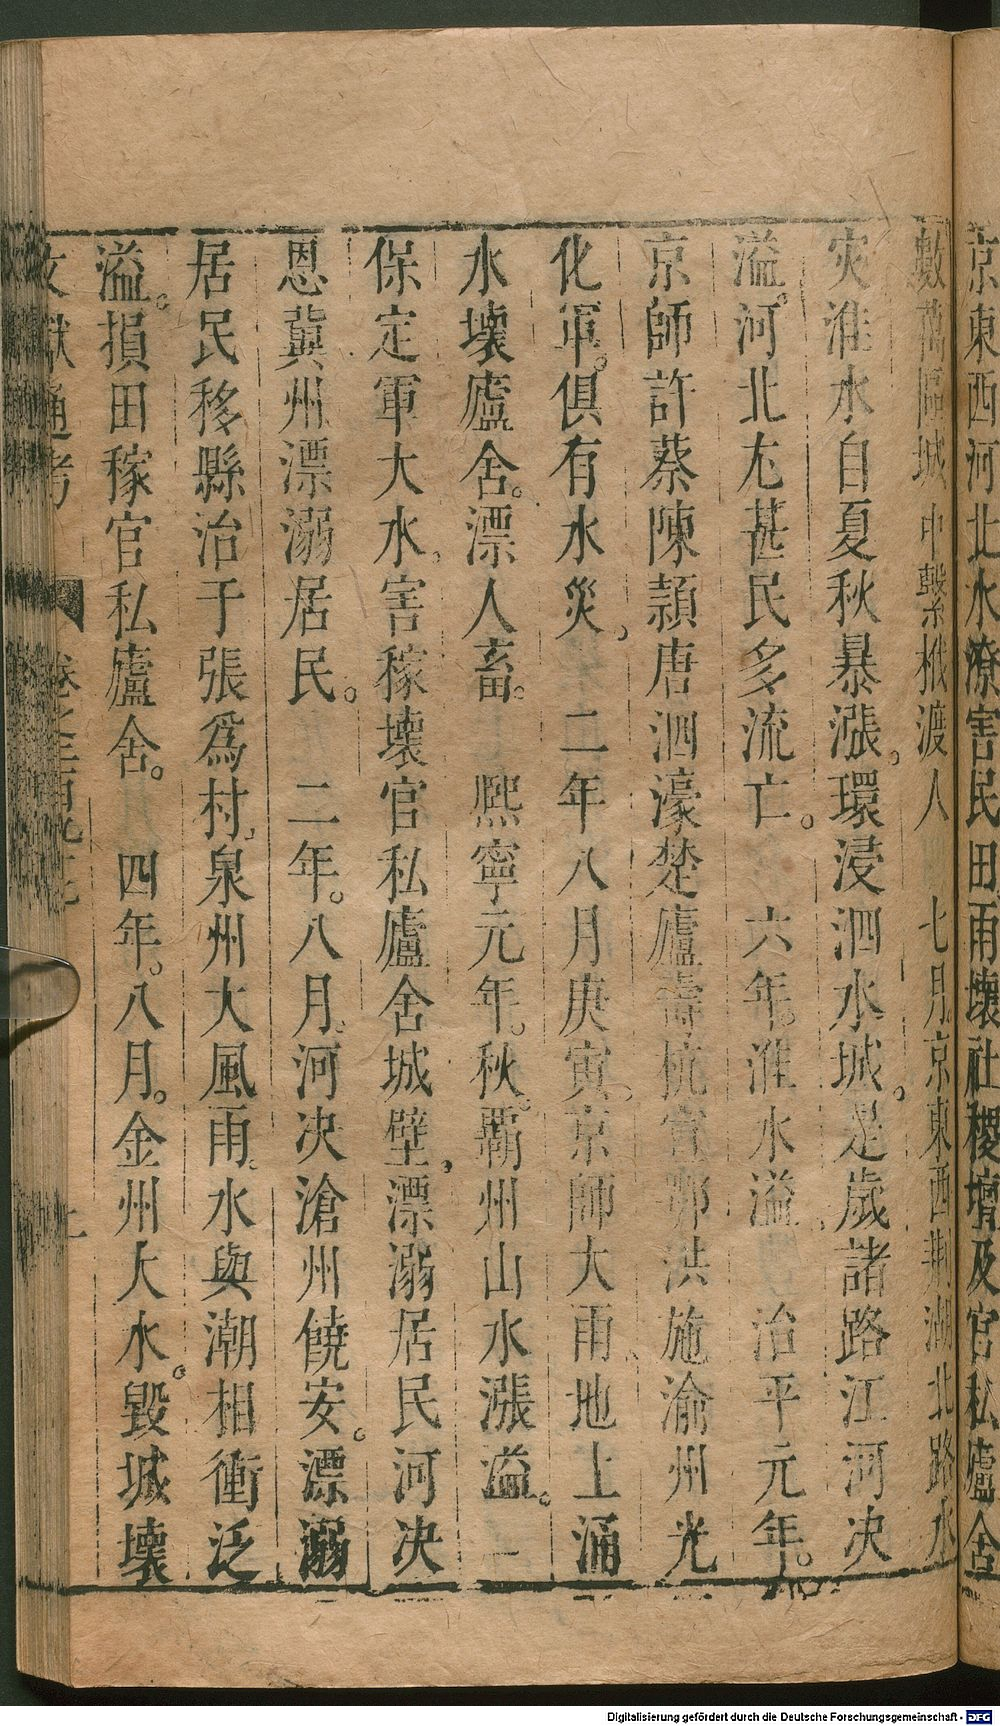 京東西河北水潦害民田雨壞社稷壇及官私廬舍
數萬區城中繫栰渡人　七月京東西荆湖北路水
災淮水自夏秋暴漲環浸泗水城。是歲諸路江河决
溢。河北尤甚民多流亡。　六年。淮水溢　治平元年。
京師許蔡陳潁唐泗濠楚廬壽杭宣鄂洪施渝州光
化軍。俱有水災　二年八月庚寅。京師大雨地上涌
水壞廬舍。漂人畜。　熙寧元年。秋。霸州山水漲溢。
保定軍大水害稼壞官私廬舍城壁漂溺居民河决
恩冀州漂溺居民。　二年。八月。河决滄州饒安。漂溺
居民移縣治于張為村泉州大風雨。水與潮相衝泛
溢。損田稼官私廬舍。　四年。八月。金州大水。毀城壞
文獻通考
卷之二百九十七
Digitalisierung gefördert durch die Deutsche Forschungsgemeinschaft - DFG